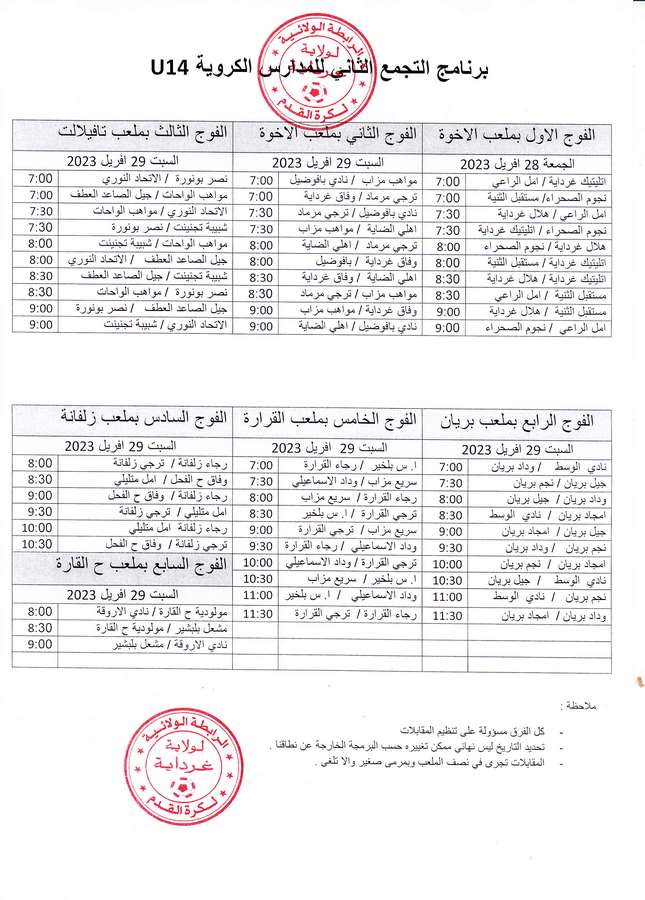 الرابطة الولائية
لولاية
غرداية
لكرة القدم
برنامج التجمع الثاني للمدارس الكروية U14
الفوج الاول بملعب الاخوة
الجمعة 28 افريل 2023
اتليتيك غرداية / امل الراعي 7:00
نجوم الصحراء/ مستقبل الثنية 7:00
امل الراعي / هلال غرداية 7:30
نجوم الصحراء / اتليتيك غرداية 7:30
هلال غرداية / نجوم الصحراء 8:00
اتليتيك غرداية / مستقبل الثنية 8:00
اتليتيك غرداية / هلال غرداية 8:30
مستقبل الثنية / امل الراعي 8:30
مستقبل الثنية / هلال غرداية 9:00
امل الراعي / نجوم الصحراء 9:00
الفوج الثاني بملعب الاخوة
السبت 29 افريل 2023
مواهب مزاب / نادي بافوضيل 7:00
ترجي مرماد / وفاق غرداية 7:00
نادي بافوضيل / ترجي مرماد 7:30
اهلي الضاية / مواهب مزاب 7:30
ترجي مرماد / اهلي الضاية 8:00
وفاق غرداية / بافوضيل 8:00
اهلي الضاية / وفاق غرداية 8:30
مواهب مزاب / ترجي مرماد 8:30
وفاق غرداية / مواهب مزاب 9:00
نادي بافوضيل / اهلي الضاية 9:00
الفوج الثالث بملعب تافيلالت
السبت 29 افريل 2023
نصر بونورة / الاتحاد النوري 7:00
مواهب الواحات / جيل الصاعد العطف 7:00
الاتحاد النوري / مواهب الواحات 7:30
شبيبة تجنينت / نصر بونورة 7:30
مواهب الواحات / شبيبة تجنينت 8:00
جيل الصاعد العطف / الاتحاد النوري 8:00
شبيبة تجنينت / جيل الصاعد العطف 8:30
نصر بونورة / مواهب الواحات 8:30
جيل الصاعد العطف / نصر بونورة 9:00
الاتحاد النوري / شبيبة تجنينت 9:00
الفوج الرابع بملعب بريان
السبت 29 افريل 2023
نادي الوسط / وداد بريان 7:00
جيل بريان / نجم بريان 7:30
وداد بريان / جيل بريان 8:00
امجاد بريان / نادي الوسط 8:30
جيل بريان / امجاد بريان 9:00
نجم بريان / وداد بريان 9:30
امجاد بريان / نجم بريان 10:00
نادي الوسط / جيل بريان 10:30
نجم بريان / نادي الوسط 11:00
وداد بريان / امجاد بريان 11:30
الفوج الخامس بملعب القرارة
السبت 29 افريل 2023
ا. س بلخير / رجاء القرارة 7:00
سريع مزاب / وداد الاسماعيلي 7:30
رجاء القرارة / سريع مزاب 8:00
ترجي القرارة / ا. س بلخير 8:30
سريع مزاب / ترجي القرارة 9:00
وداد الاسماعيلي / رجاء القرارة 9:30
ترجي القرارة / وداد الاسماعيلي 10:00
ا. س بلخير / سريع مزاب 10:30
وداد الاسماعيلي / ا. س بلخير 11:00
رجاء القرارة / ترجي القرارة 11:30
الفوج السادس بملعب زلفانة
السبت 29 افريل 2023
رجاء زلفانة / ترجي زلفانة 8:00
وفاق ح الفحل / امل متليلي 8:30
رجاء زلفانة / وفاق ح الفحل 9:00
امل متليلي / ترجي زلفانة 9:30
رجاء زلفانة امل متليلي 10:00
ترجي زلفانة / وفاق ح الفحل 10:30
الفوج السابع بملعب ح القارة
السبت 29 افريل 2023
مولودية ح القارة / نادي الاروقة 8:00
مشعل بلبشير / مولودية ح القارة 8:30
نادي الاروقة / مشعل بلبشير 9:00
ملاحظة :
- كل الفرق مسؤولة على تنظيم المقابلات
- تحديد التاريخ ليس نهائي ممكن تغييره حسب البرمجة الخارجة عن نطاقنا .
- المقابلات تجرى في نصف الملعب وبمرمى صغير والا تلغى .
الرابطة الولائية
لولاية
غرداية
لكرة القدم